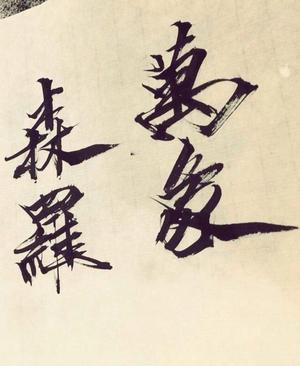 萬象
森羅